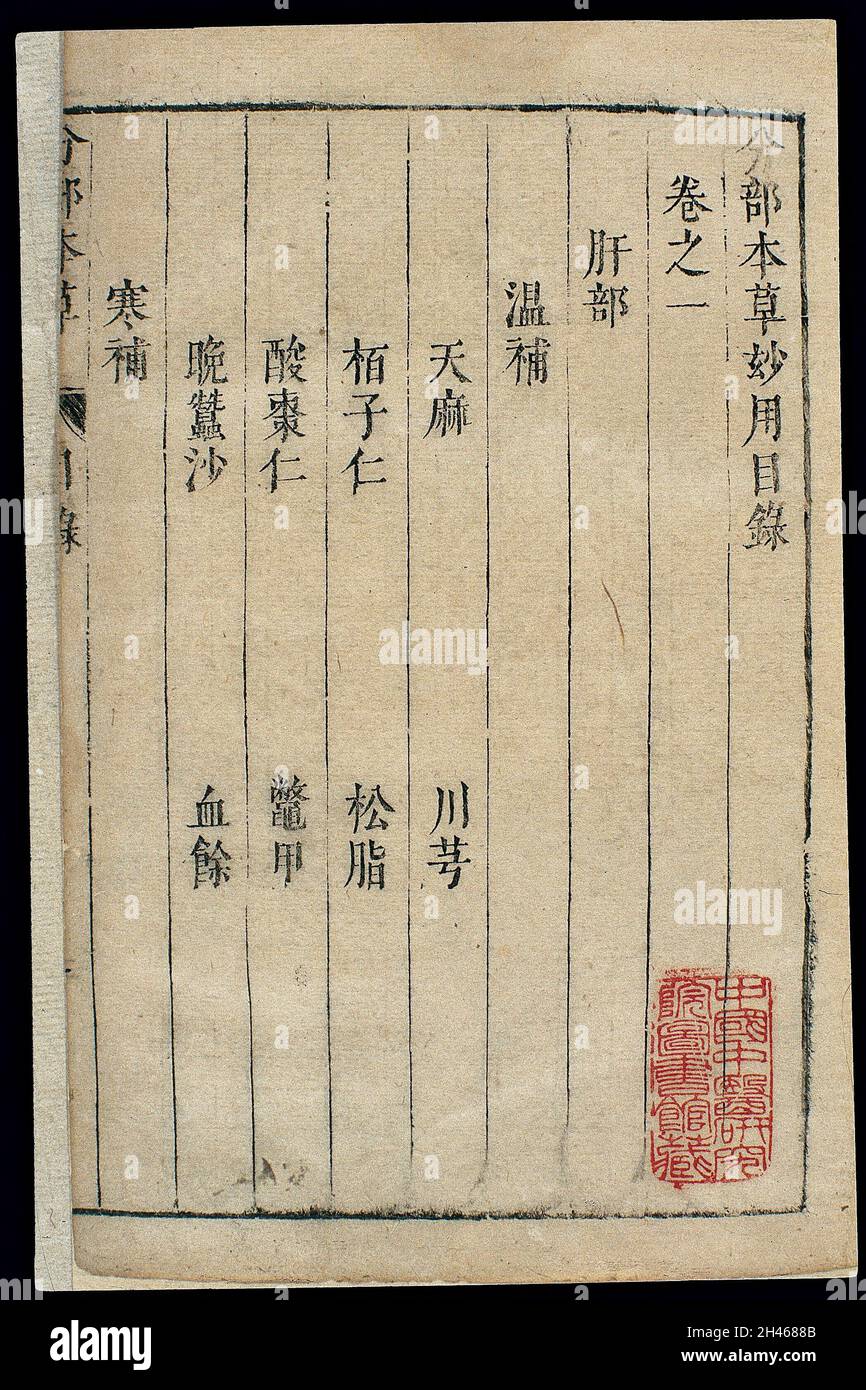 分部本草玅用目錄
卷之一
肝部
温補
天麻 川芎
栢子仁 松脂
酸棗仁 鼈甲
晩蠶沙 血餘
寒補
分部本草 目錄
中國中醫研究
院圖書館藏
alamy
alamy
Image ID: 2H4688B
www.alamy.com